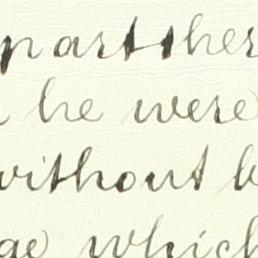 part sher
he were
without b
ge which